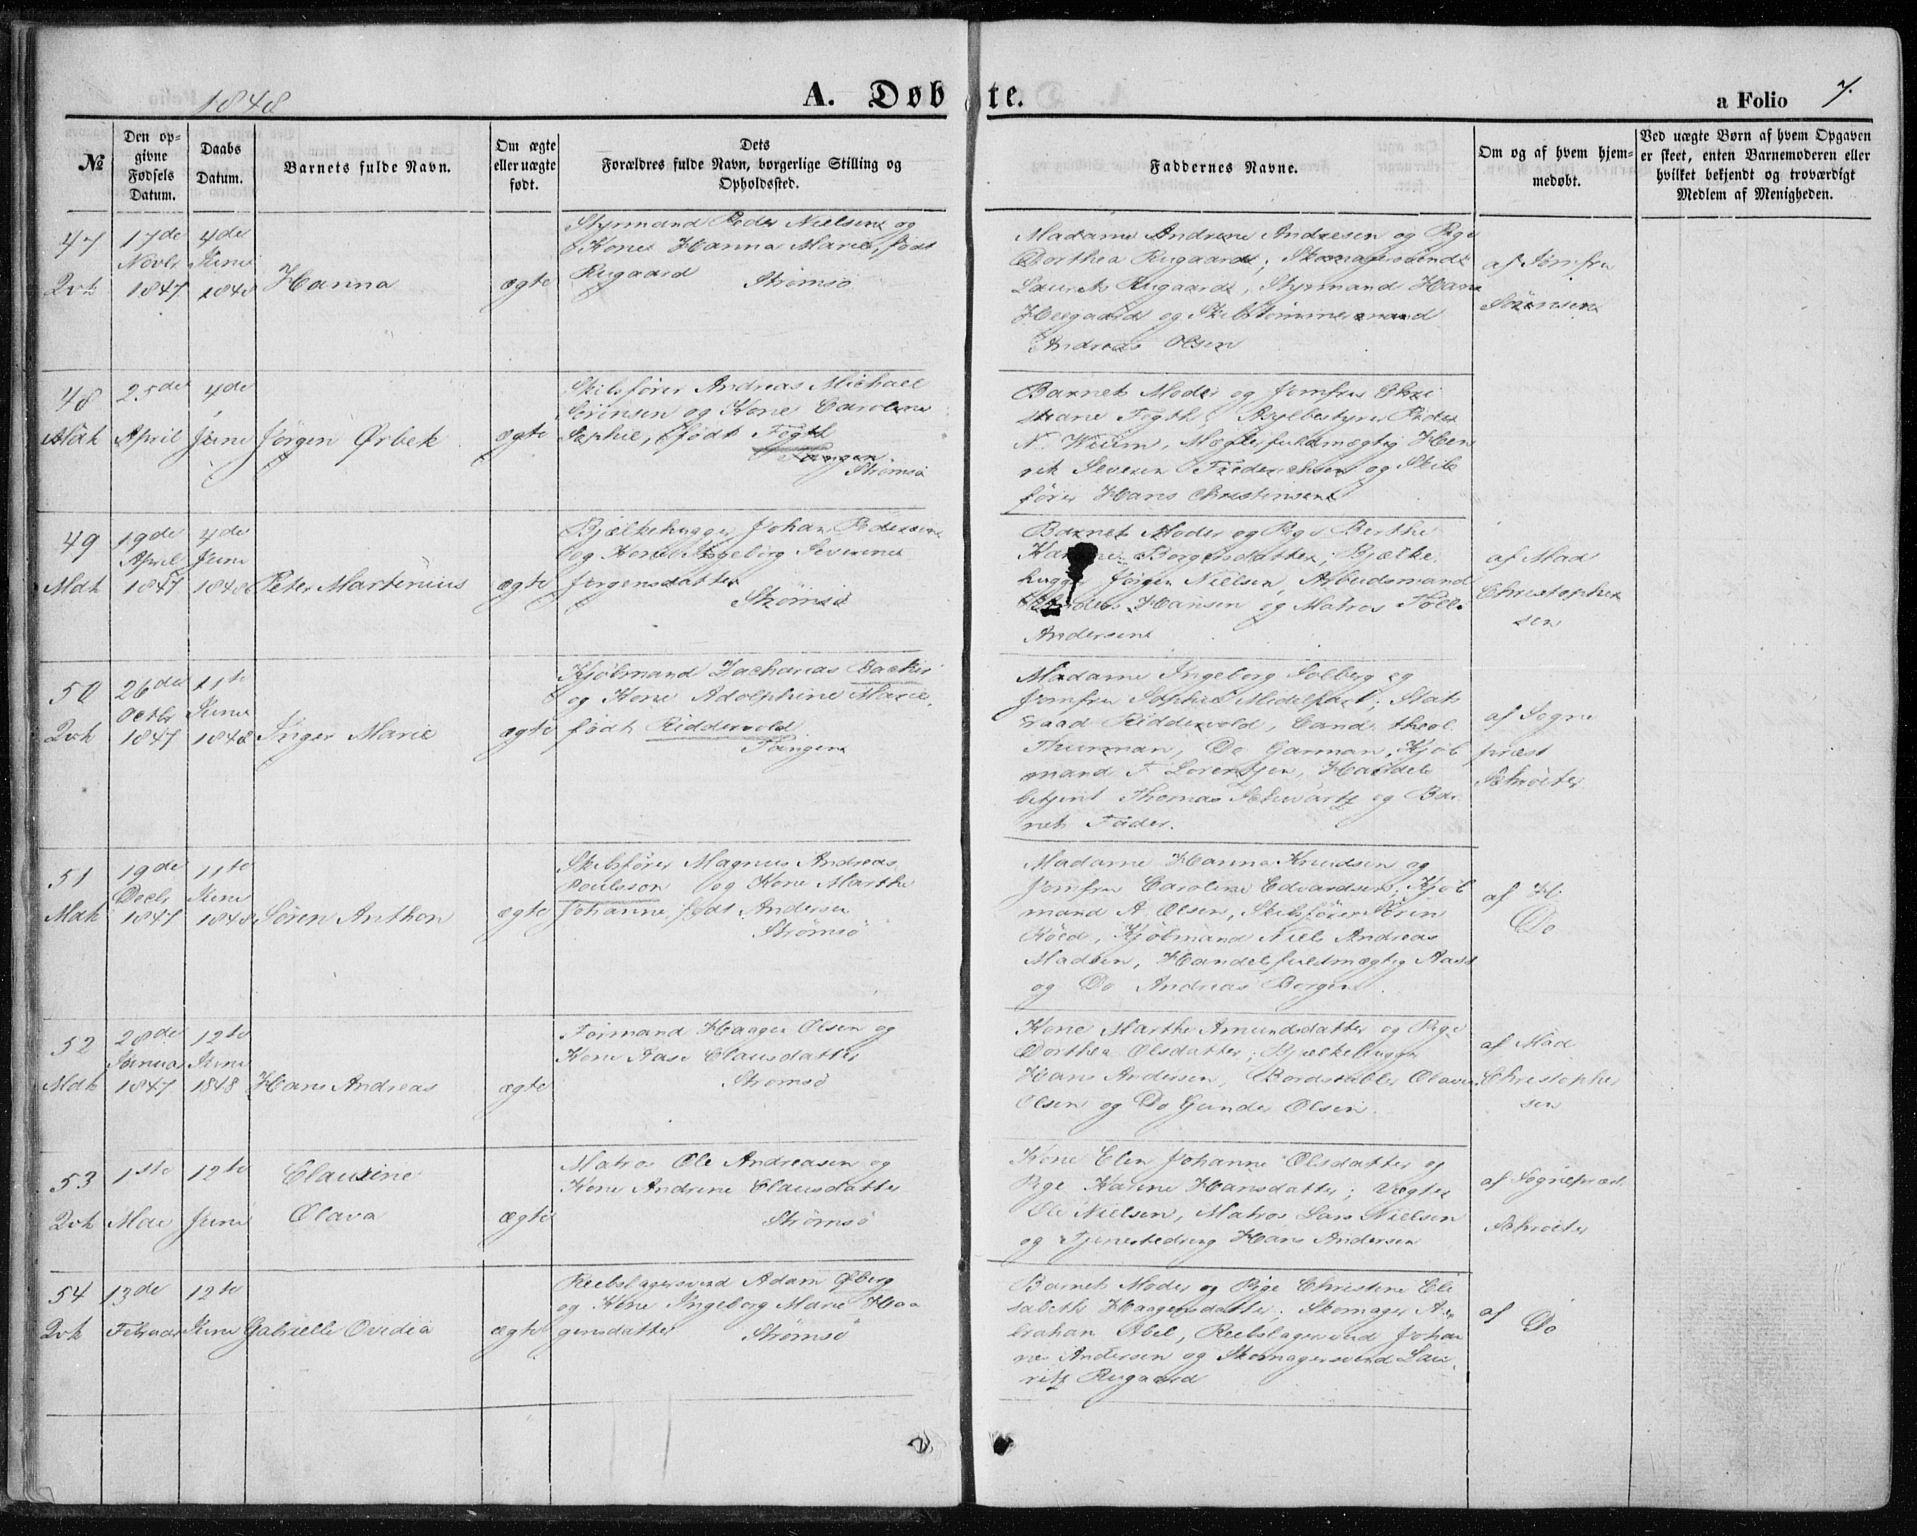 1848
A. Døbte.
a Folio 7.
№
Den opgivne Fødsels Datum.
Daabs Datum.
Barnets fulde Navn.
Om ægte eller uægte født.
Dets Forældres fulde Navn, borgerlige Stilling og Opholdssted.
Faddernes Navne.
Om og af hvem hjemmedøbt.
Ved uægte Børn af hvem Opgaven er skeet, enten Barnemoderen eller hvilket bekjendt og troværdigt Medlem af Menigheden.
47
17de Novbr 1847
4de Juni 1848
Hanna
ægte
Styrmand Peder Nielsen og
Kone Hanna Marie, født
Rugaard Strømsø
Madame Andrine Andresen og Pige
Dorthea Rugaard; Skomagersvend
Laurits Rugaard, Styrmand Hans
Heegaard og Skibstømmermand
Andreas Olsen
af Jomfru
Sörensen
48
25de April
4de Juni
Jørgen Ørbek
ægte
Skibsfører Andreas Michael
Sörensen og Kone Caroline
Sophie, født Fogth
Tangen.
Strømsø
Barnets Moder og Jomfru Chri
stiane Fogth; Peder
N. Wium, Mæglerfuldmægtig Hen
rik Severin Frederichsen og Skibs
fører Hans Christensen
49
19de April 1847
4de Juni 1848
Peter Martinius
ægte
Bjælkehugger Johan Pedersen
og Kone Ingeborg Severine
Jørgensdatter
Strømsø
Barnets Moder og Pige Berthe
Borgersdatter, Bjælke
hugger Jørgen Nielsen, Arbeidsmand
Hansen og Matros
Andersen
af Mad
Christopher
sen
50
26de Octbr 1847
11te Juni 1848
Inger Marie
ægte
Kjøbmand Zacharias Backer
og Kone Adolphine Marie,
født Riddervold
Tangen
Madame Ingeborg Solberg og
Jomfru Sophie Medelfart; Stats
raad Riddervold, Cand. theol
Thurman, Do Garman, Kjøb
mand F Lorentzen, Handels
betjent Thomas Schwartz og Bar
nets Fader.
af Sogne
præst
Schröeter
51
19de Decbr 1847
11te Juni 1848
Søren Anthon
ægte
Skibsfører Magnus Andreas
Paulsson og Kone Marthe
Johanne, født Andersen
Strømsø
Madame Hanna Knudsen og
Jomfru Caroline Edvardsen; Kjøb
mand A. Olsen, Skibsfører Sörin
Kjöbmand Niels Andreas
Madsen, Handelsfuldmægtig
og Do Andreas Borgen
af
Do
52
28de Januar 1847
12te Juni 1848
Hans Andreas
ægte
Formand Haagen Olsen og
Kone Aase Clausdatter
Strømsø
Kone Marthe Amundsdatter og Pige
Dorthea Olsdatter; Bjælkehugger
Hans Andersen, Bordstabler Olaves
Olsen og Do Gunder Olsen.
af Mad
Christopher
sen
53
1ste Mai
12te Juni
Claurine
Olava
ægte
Matros Ole Andreasen og
Kone Andrine Clausdatter
Strømsø
Kone Elen Johanne Olsdatter og
Pige Karine Hansdatter; Vægter
Ole Nielsen, Matros Lars Nielsen
og Tjenestedreng Hans Andersen
af Sognepræst
Schröeter
54
13de Februar
12te Juni
Gabrielle Ovedia
ægte
Reebslagersvend Adam Øberg
og Kone Ingeborg Marie Haa
gensdatter Strømsø
Barnets Moder og Pige Christine Eli
sabeth Haagensdatter; Skomager A
braham Abel, Reebslagersvend Johan
nes Andersen og Skomagersvend Lau
ritz Rugaard
af Do